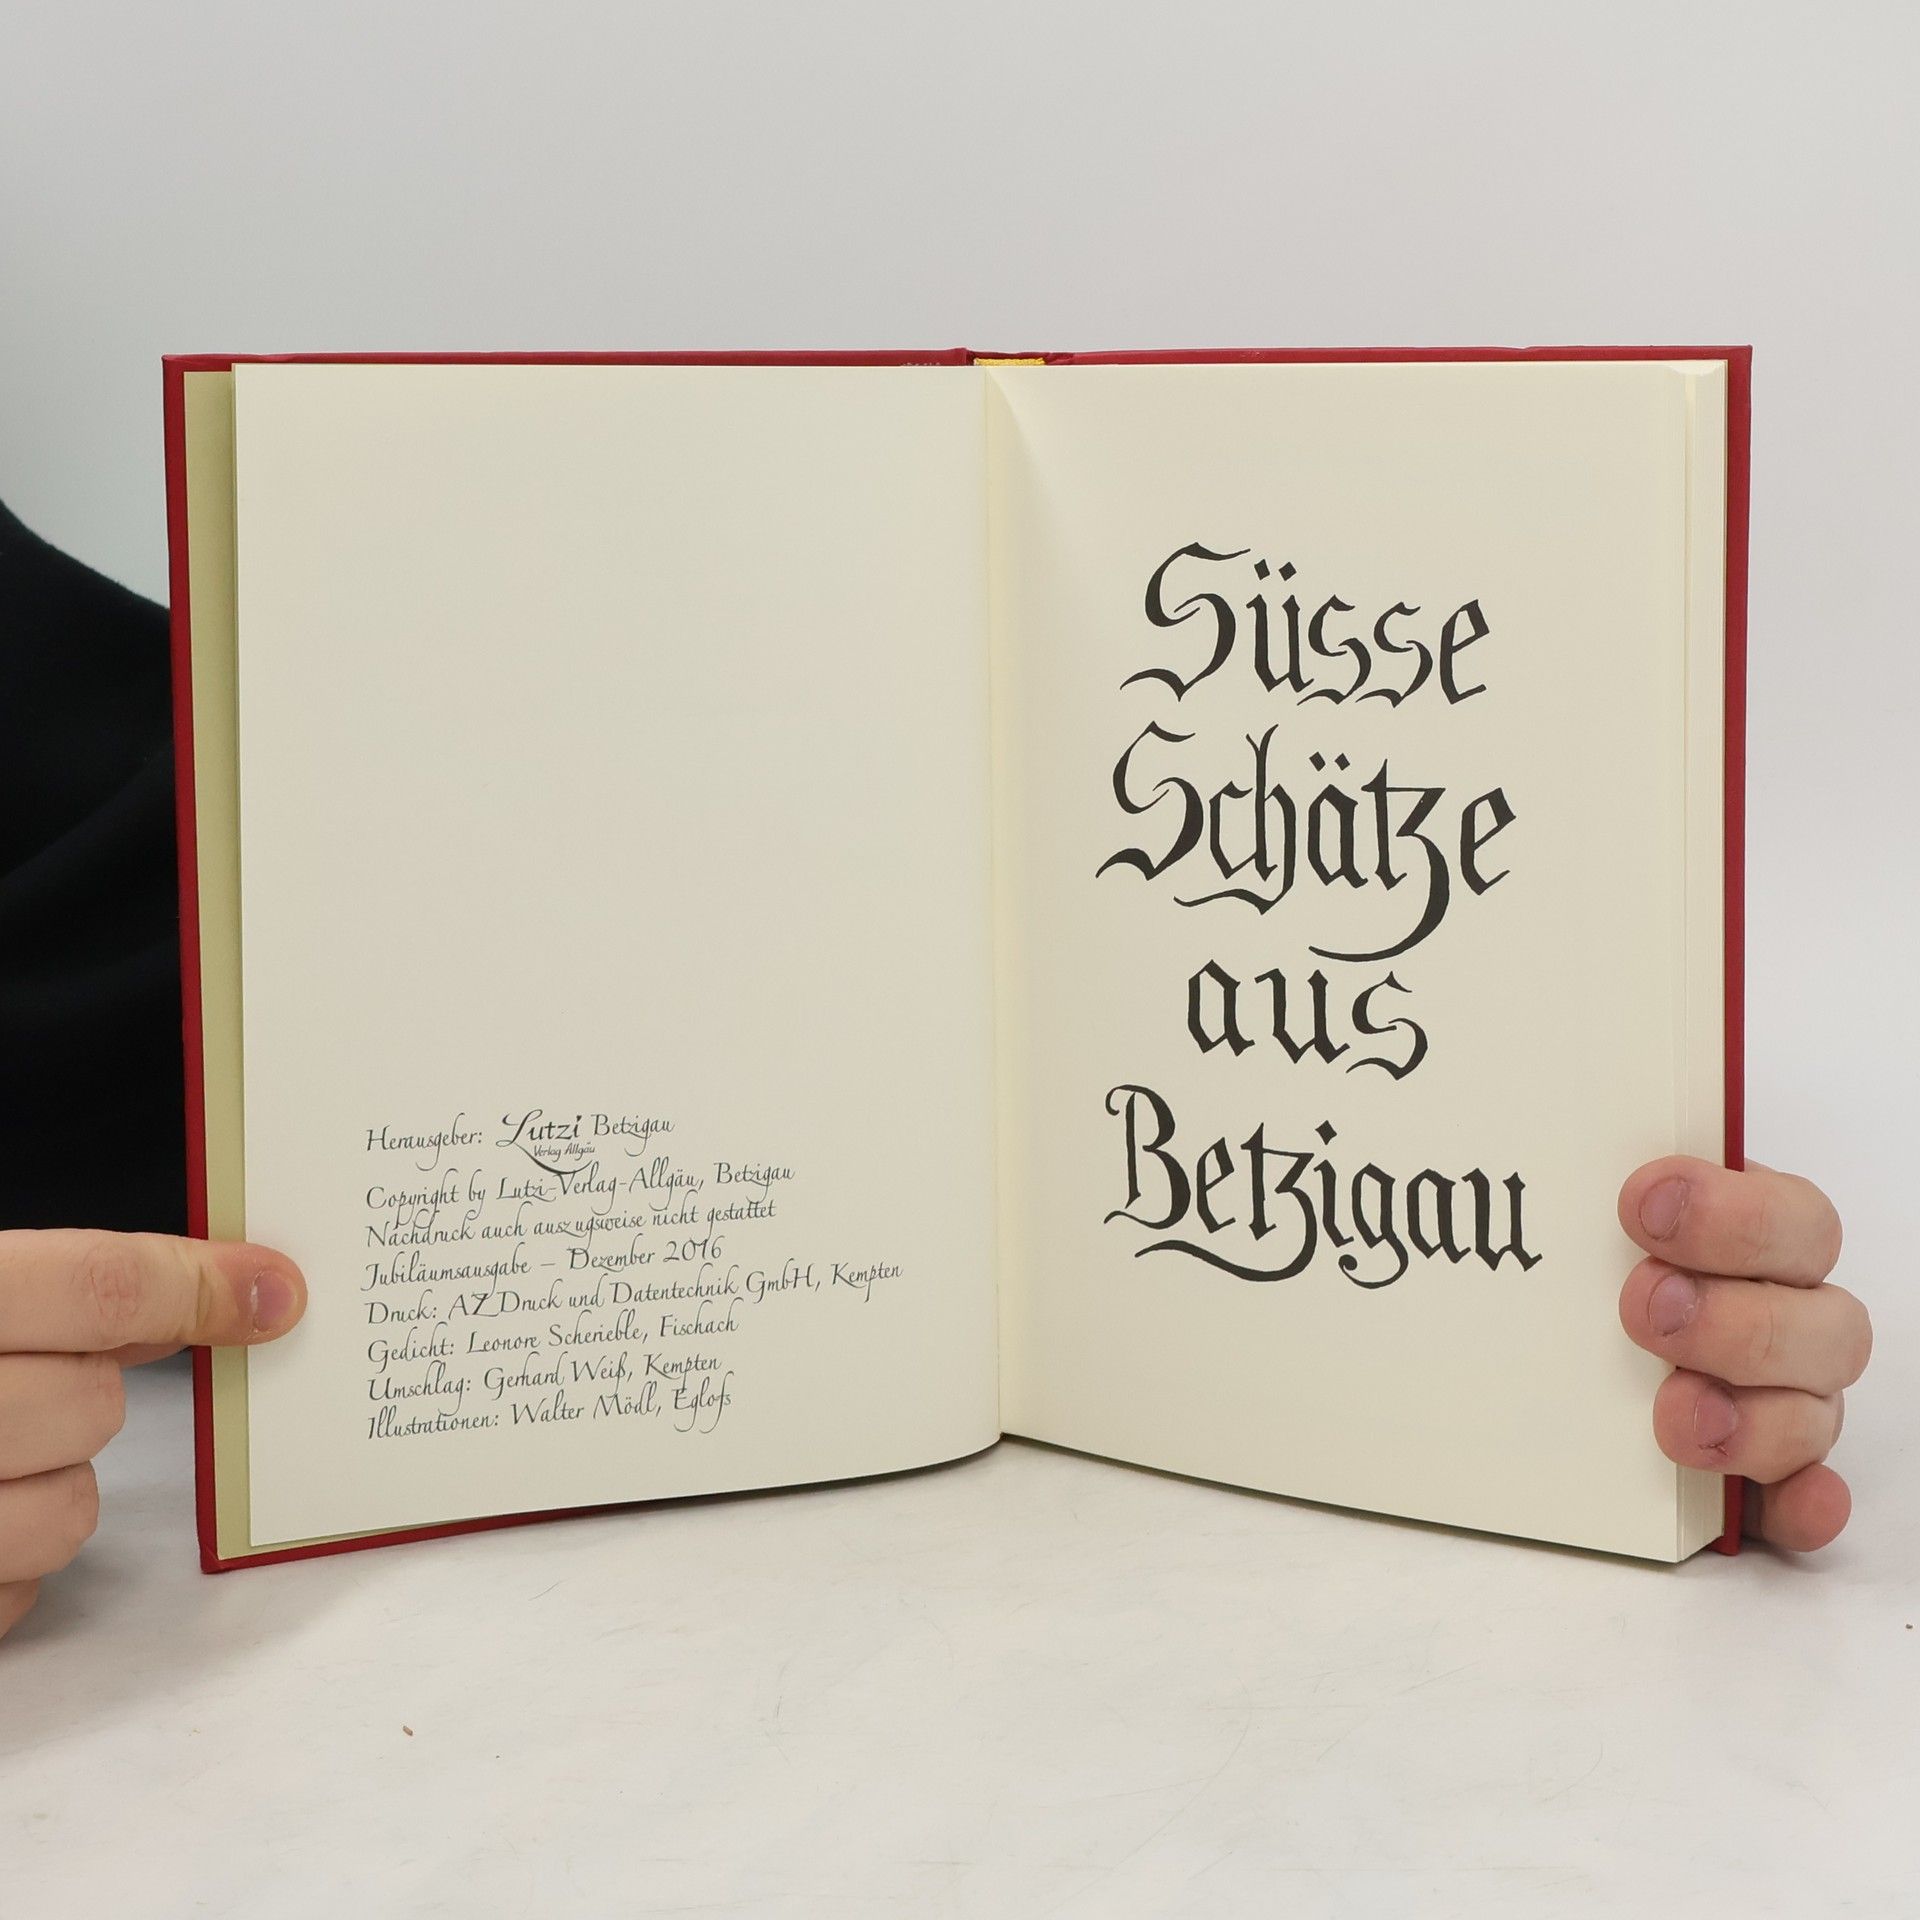 Herausgeber: Lutzi Betzigau
Verlag Allgäu
Copyright by Lutzi-Verlag-Allgäu, Betzigau
Nachdruck auch auszugsweise nicht gestattet
Jubiläumsausgabe – Dezember 2016
Druck: AZ Druck und Datentechnik GmbH, Kempten
Gedicht: Leonore Scherieble, Fischach
Umschlag: Gerhard Weiß, Kempten
Illustrationen: Walter Mödl, Eglofs
Süsse
Schätze
aus
Betzigau